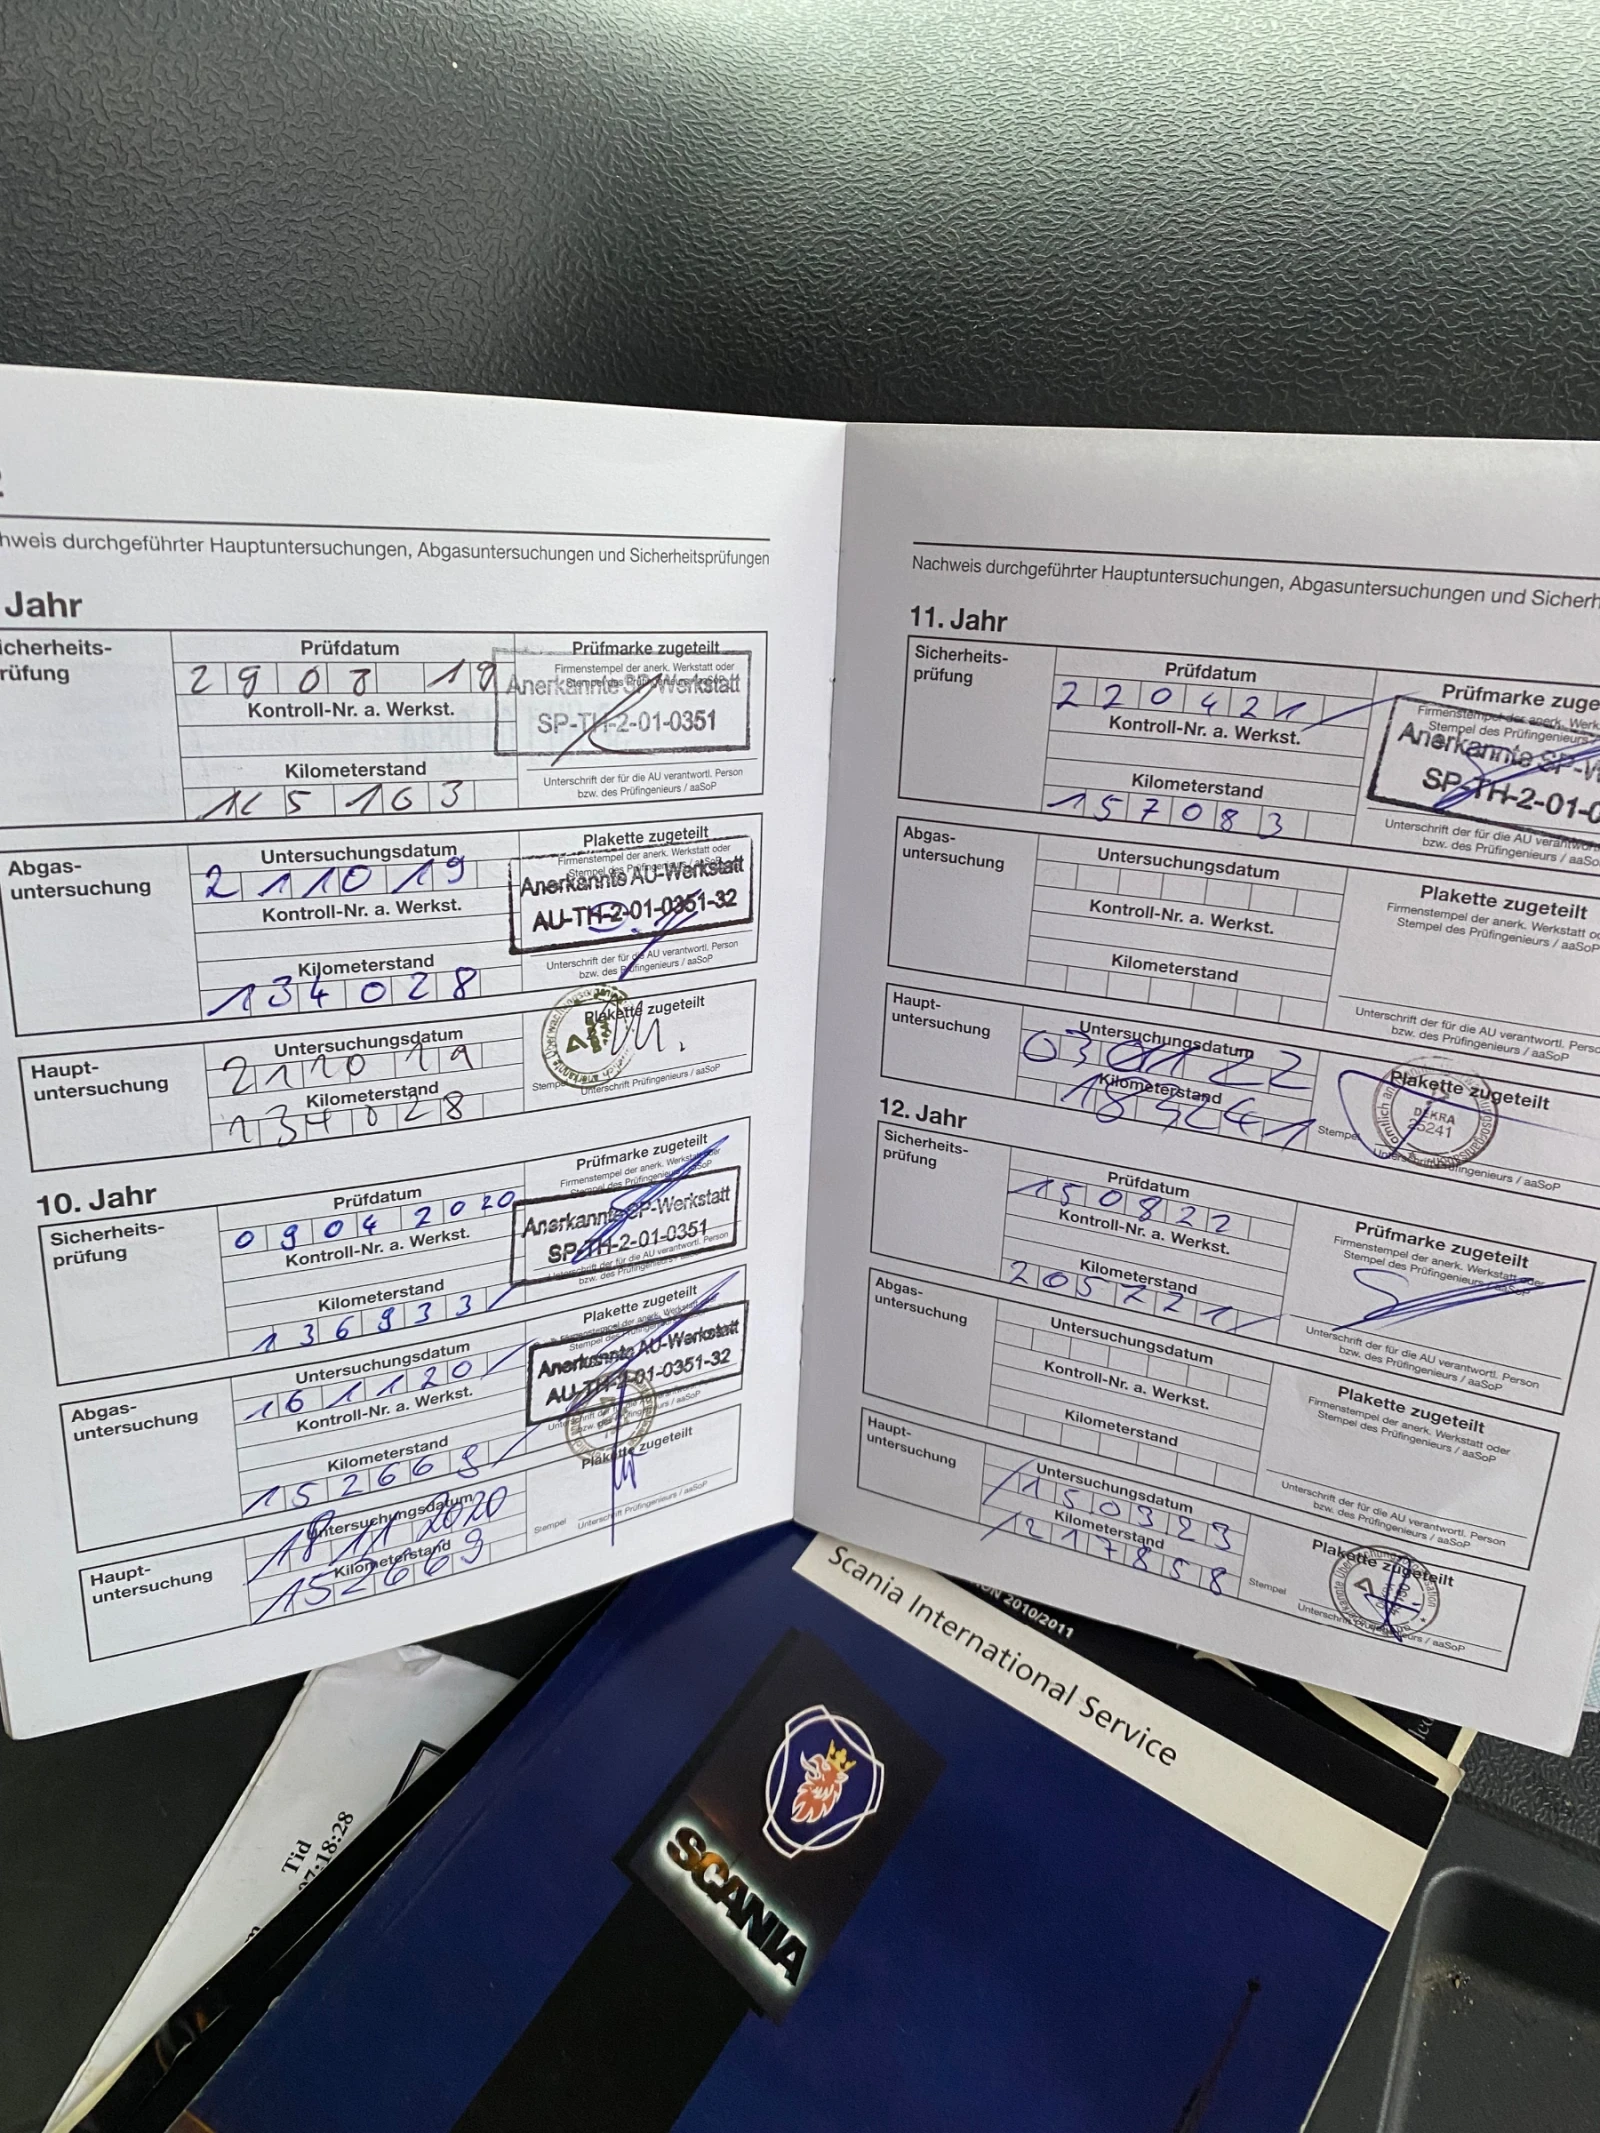 hweis durchgeführter Hauptuntersuchungen, Abgasuntersuchungen und Sicherheitsprüfungen
Jahr
icherheits-
rüfung
Prüfdatum
19
Kontroll-Nr. a. Werkst.
Kilometerstand
Prüfmarke zugeteilt
Firmenstempel der anerk. Werkstatt oder
Stempel des Prüfingenieurs / aaSoP
Anerkannte SP-Werkstatt
SP-TH-2-01-0351
Unterschrift der für die AU verantwortl. Person
bzw. des Prüfingenieurs / aaSoP
Abgas-
untersuchung
Untersuchungsdatum
211019
Kontroll-Nr. a. Werkst.
Kilometerstand
134028
Plakette zugeteilt
Firmenstempel der anerk. Werkstatt oder
Stempel des Prüfingenieurs / aaSoP
Anerkannte AU-Werkstatt
AU-TH-2-01-0351-32
Unterschrift der für die AU verantwortl. Person
bzw. des Prüfingenieurs / aaSoP
Haupt-
untersuchung
Untersuchungsdatum
211019
Kilometerstand
134028
Plakette zugeteilt
Stempel
Unterschrift Prüfingenieurs / aaSoP
10. Jahr
Sicherheits-
prüfung
Prüfdatum
09042020
Kontroll-Nr. a. Werkst.
Kilometerstand
136933
Prüfmarke zugeteilt
Firmenstempel der anerk. Werkstatt oder
Stempel des Prüfingenieurs / aaSoP
Anerkannte SP-Werkstatt
SP-TH-2-01-0351
Unterschrift der für die AU verantwortl. Person
bzw. des Prüfingenieurs / aaSoP
Abgas-
untersuchung
Untersuchungsdatum
161120
Kontroll-Nr. a. Werkst.
Kilometerstand
152669
Plakette zugeteilt
Anerkannte AU-Werkstatt
AU-TH-2-01-0351-32
Haupt-
untersuchung
Untersuchungsdatum
18 11 2020
Kilometerstand
152669
Plakette zugeteilt
Stempel
Unterschrift Prüfingenieurs / aaSoP
Nachweis durchgeführter Hauptuntersuchungen, Abgasuntersuchungen und Sicherh
11. Jahr
Sicherheits-
prüfung
Prüfdatum
220421
Kontroll-Nr. a. Werkst.
Kilometerstand
157083
Prüfmarke zuge
Firmenstempel der anerk. Werk
Stempel des Prüfingenieurs
Anerkannte SP-W
SP-TH-2-01-0
Unterschrift der für die AU verantwort
bzw. des Prüfingenieurs / aaSo
Abgas-
untersuchung
Untersuchungsdatum
Kontroll-Nr. a. Werkst.
Kilometerstand
Plakette zugeteilt
Firmenstempel der anerk. Werkstatt o
Stempel des Prüfingenieurs / aaSoP
Unterschrift der für die AU verantwortl. Perso
bzw. des Prüfingenieurs / aaSoP
Haupt-
untersuchung
Untersuchungsdatum
Kilometerstand
Plakette zugeteilt
DEKRA
25241
Stempel
Unterschrift Prüfingenieurs / aaSoP
12. Jahr
Sicherheits-
prüfung
Prüfdatum
150822
Kontroll-Nr. a. Werkst.
Kilometerstand
Prüfmarke zugeteilt
Firmenstempel der anerk. Werkstatt oder
Stempel des Prüfingenieurs / aaSoP
Unterschrift der für die AU verantwortl. Person
bzw. des Prüfingenieurs / aaSoP
Abgas-
untersuchung
Untersuchungsdatum
Kontroll-Nr. a. Werkst.
Kilometerstand
Plakette zugeteilt
Firmenstempel der anerk. Werkstatt oder
Stempel des Prüfingenieurs / aaSoP
Unterschrift der für die AU verantwortl. Person
bzw. des Prüfingenieurs / aaSoP
Haupt-
untersuchung
Untersuchungsdatum
150323
Kilometerstand
217858
Plakette zugeteilt
Stempel
Unterschrift Prüfingenieurs / aaSoP
2010/2011
Scania International Service
SCANIA
Tid
07:18:28